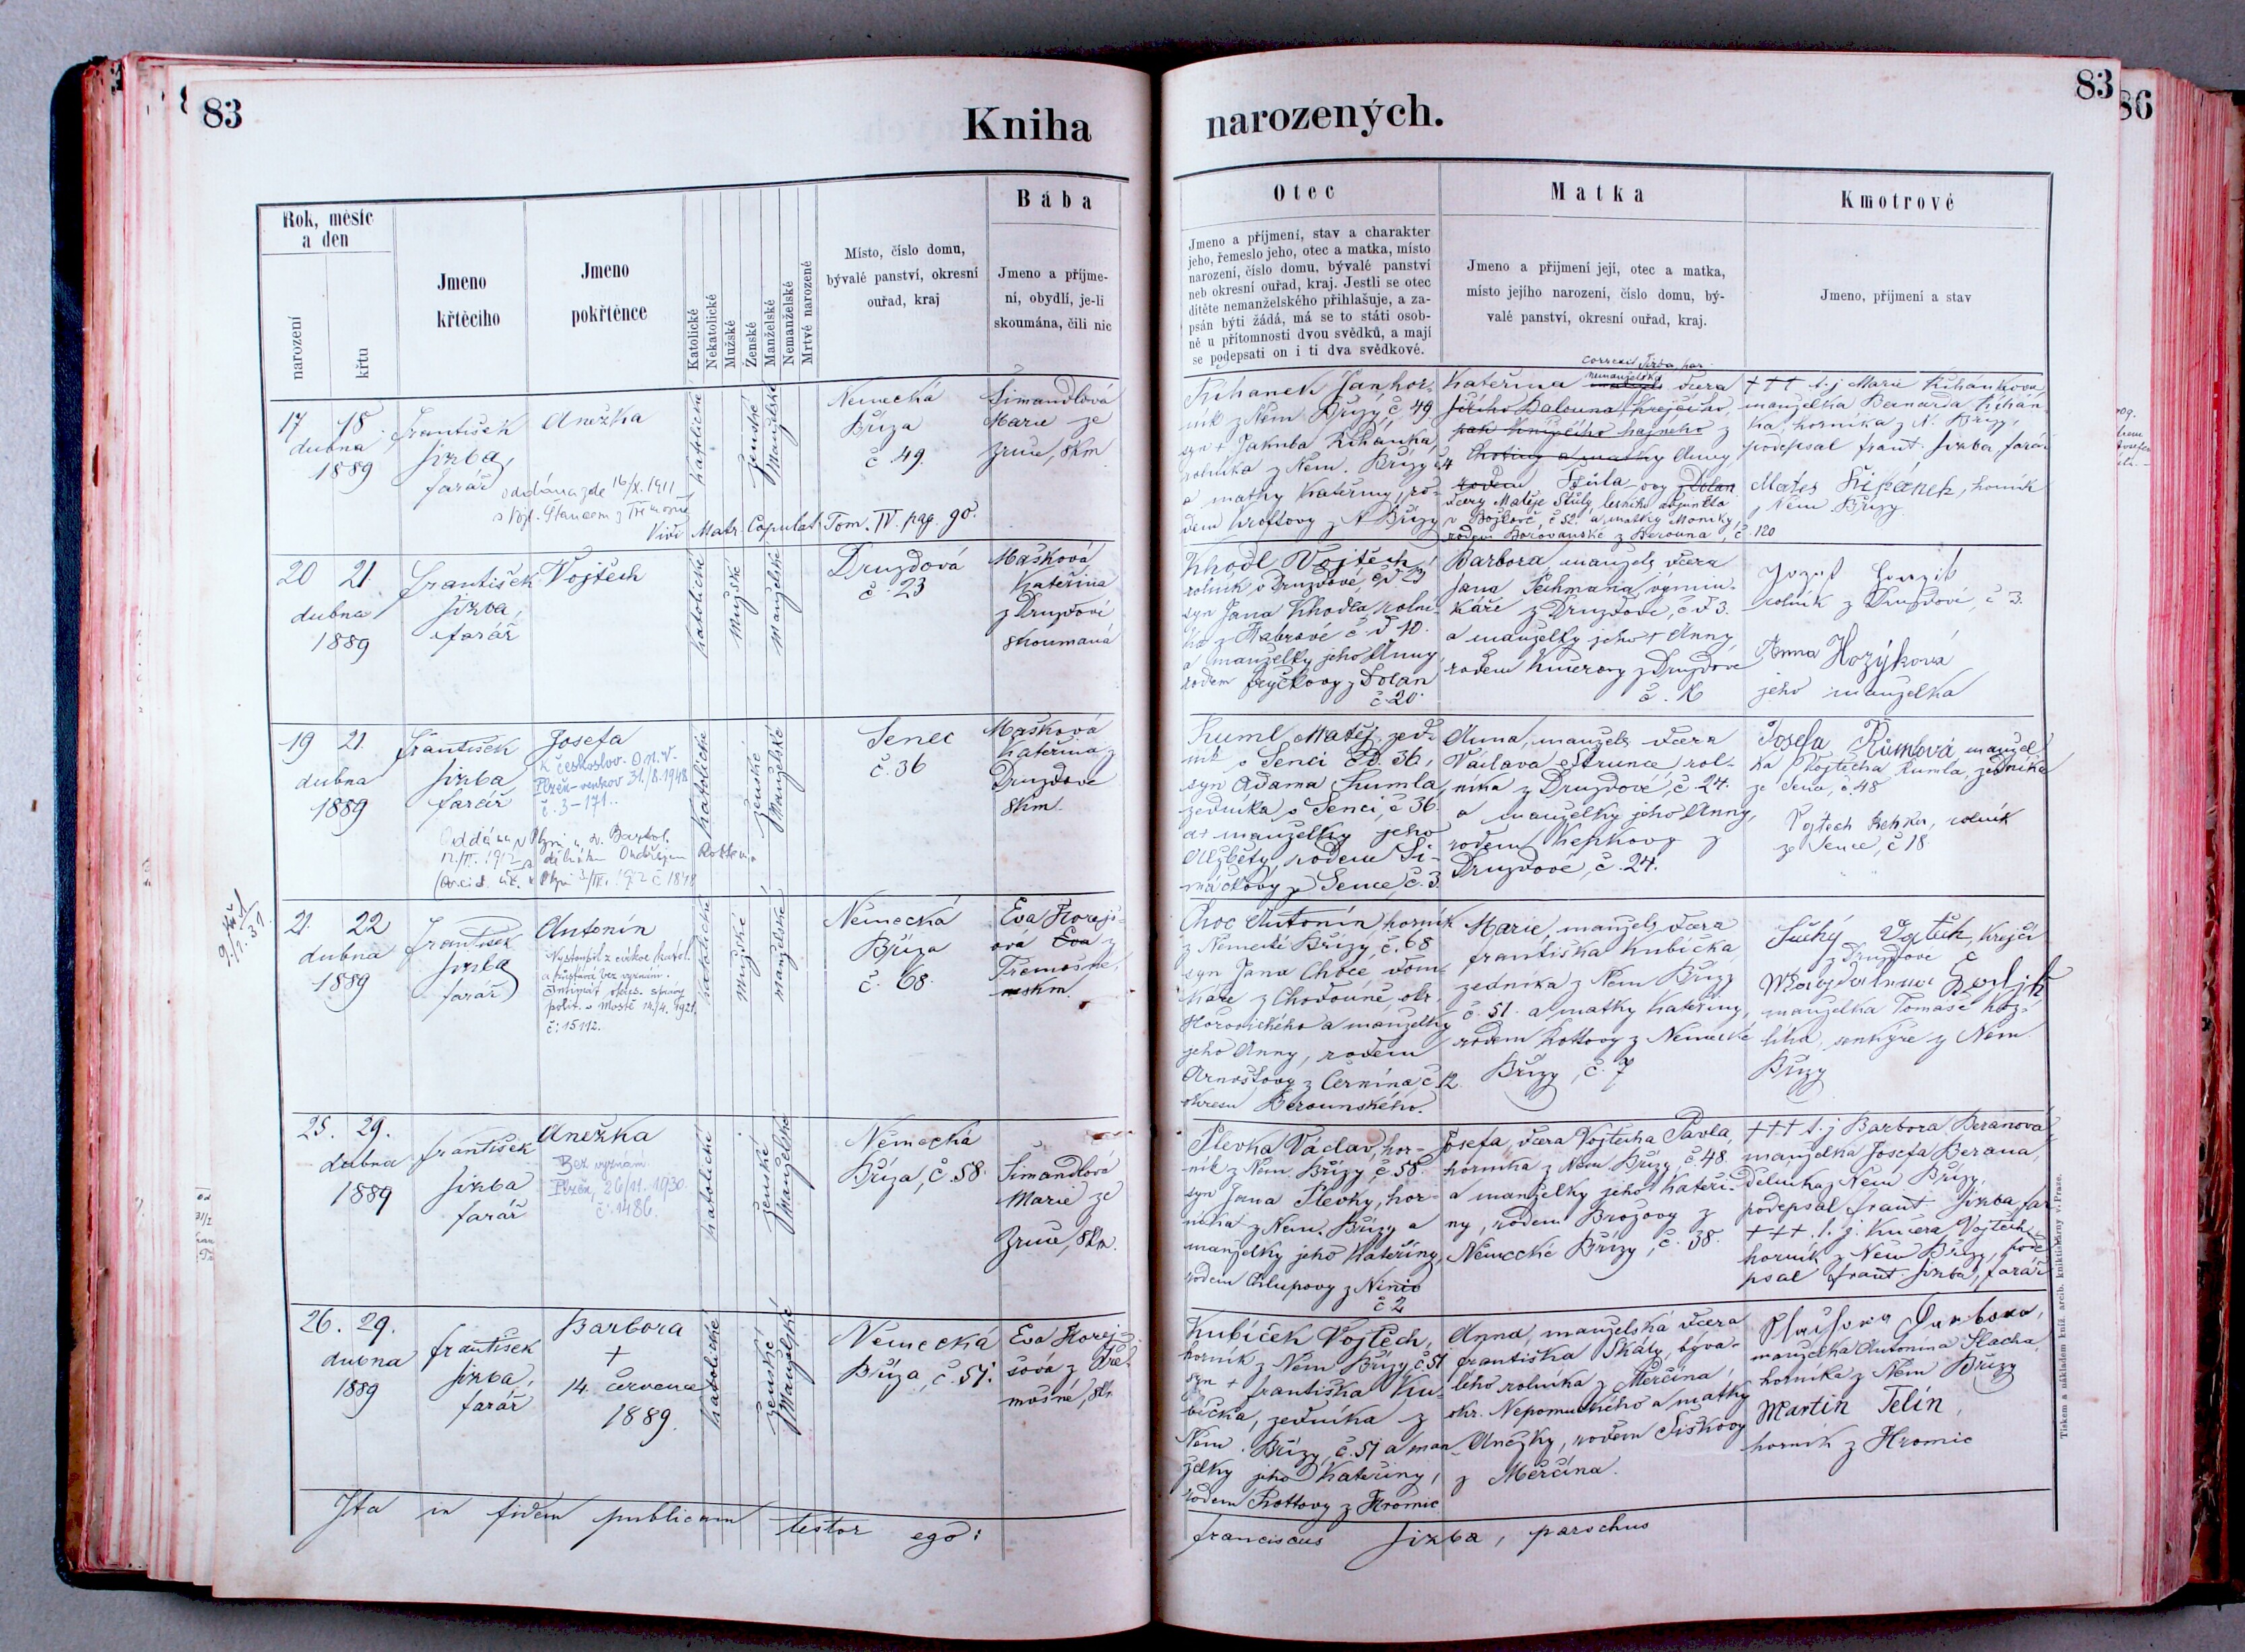 83
Kniha
narozených.
83
86
Rok, měsíc
a den
narození
křtu
Jmeno
křtěcího
Jmeno
pokřtěnce
Katolické
Nekatolické
Mužské
Ženské
Manželské
Nemanželské
Mrtvě narozené
Místo, číslo domu,
bývalé panství, okresní
ouřad, kraj
Bába
Jmeno a příjme-
ní, obydlí, je-li
skoumána, čili nic
Otec
Jmeno a příjmení, stav a charakter
jeho, řemeslo jeho, otec a matka, místo
narození, číslo domu, bývalé panství
neb okresní ouřad, kraj. Jestli se otec
dítěte nemanželského přihlašuje, a za-
psán býti žádá, má se to státi osob-
ně u přítomnosti dvou svědků, a mají
se podepsati on i ti dva svědkové.
Matka
Jmeno a příjmení její, otec a matka,
místo jejího narození, číslo domu, bý-
valé panství, okresní ouřad, kraj.
Kmotrové
Jmeno, příjmení a stav
17 18
dubna
1889
František
Jizba,
farář
Anežka
oddána zde 16/X. 1911
s Vojt. Štancem z Třemošné
Vidi Matr. Copulat. Tom. IV. pag. 90.
katolické
ženské
manželské
Německá
Bříza
č. 49.
Šimandlová
Marie ze
Zruče, skm
Řihánek Jan, hor-
ník z Něm. Břízy č. 49
syn † Jakuba Řihánka,
rolníka z Něm. Břízy č. 4
a matky Kateřiny, ro-
dem Kroftovy z N. Břízy
Kateřina nemanželská dcera
Jiřího Balouna, krejčího,
z
a matky Anny,
rodem Štůla-ovy z Dolan
dcery Matěje Štůly, lesního adjunkta
v Dojkově, č 52. a matky Moniky,
rodem Borovanské z Berouna, č 120
††† t. j. Marie Řihánková
manželka Bernarda Řihán-
ka, horníka z N. Břízy,
podepsal Frant. Jizba, farář
Mates Štěpánek, horník
z Něm Břízy
20 21.
dubna
1889
František
Jizba,
farář
Vojtěch
katolické
mužské
manželské
Druzdová
č. 23
Mašková
Kateřina
z Druzdové
skoumaná
Khodl Vojtěch,
rolník v Druzdové č. 23
syn Jana Khodla, rolní-
ka z Habrové č. d 10.
a manželky jeho Anny
rodem Fryčkovy z Dolan
č. 20.
Barbora, manžels dcera
Jana Pechmana, výmin-
káře z Druzdové, č. d 3.
a manželky jeho † Anny,
rodem Kučerovy z Druzdove
rolník z Druzdové, č 3.
Anna Kozýková
jeho manželka
19 21.
dubna
1889
František
Jizba
farář
Josefa
k českoslov. O.n.V.
Plzeň-venkov 31./8. 1948
č. 3-171..
Oddána v Plzni u sv. Bartol.
katolické
ženské
manželské
Senec
č. 36
Mašková
Kateřina z
Druzdové
skm.
Kuml Matěj, zed-
ník v Senci č. d. 36,
syn Adama Kumla,
zedníka v Senci, č 36.
a † manželky jeho
Alžběty, rodem Ši-
máčkovy ze Sence, č. 3.
Anna, manžels dcera
Václava Strunce, rol-
níka z Druzdové, č. 24.
a manželky jeho Anny,
rodem Kepkovy z
Druzdové, č. 24.
Josefa Kůmlová, manžel
ka Vojtěcha Kumla, zedníka
ze Sence, č 48
Vojtěch Kepka, rolník
ze Sence, č 18.
21. 22
dubna
1889
František
Jizba
farář
Antonín
Vystoupil z církve katol.
a zůstává bez vyznání.
Intimát okres. správy
polit. v Mostě 14./4. 1921.
č: 15112.
katolické
mužské
manželské
Německá
Bříza
č. 68.
Eva Horejš-
ová Eva z
Třemošné,
skm.
Choc Antonín, horník
z Německé Břízy, č. 68
syn Jana Choce dom-
káře z Chodouně, okr.
Hořovického a manželky
jeho Anny, rodem
Arnoštovy z Černína, č. 12.
okresu Berounského.
Marie, manžels dcera
Františka Kubíčka,
zedníka z Něm Břízy
č. 51. a matky Kateřiny,
rodem Kottovy z Německé
Břízy, č. 7
Suchý Vojtěch, krejčí
z Druzdové
manželka Tomáše Koz-
líka, šenkýře z Něm
Břízy
25. 29.
dubna
1889
František
Jizba
farář
Anežka
Bez vyznání.
Plzeň, 26/11. 1930.
č. 1486.
katolické
ženské
manželské
Německá
Bříza, č. 58.
Šimandlová
Marie ze
Zruče, skm.
Plevka Václav, hor-
ník z Něm. Břízy, č. 58.
syn Jana Plevky, hor-
níka z Něm. Břízy a
manželky jeho Kateřiny,
rodem Chlupovy z Ninic
č 2
Josefa, dcera Vojtěcha Pavla,
horníka z Něm Břízy č. 48
a manželky jeho Kateři-
ny, rodem Brožovy z
Německé Břízy, č. 38.
††† t. j Barbora Beranová
manželka Josefa Berana,
dělníka z Něm Břízy,
podepsal Frant Jizba, far
††† t. j. Kučera Vojtěch
horník z Něm Břízy, pode
psal Frant. Jizba, farář
26. 29.
dubna
1889
František
Jizba,
farář
Barbora
†
14. července
1889.
katolické
ženské
manželské
Německá
Bříza, č. 51.
Eva Horej-
šová z Tře-
mošné, skm
Kubíček Vojtěch,
horník z Něm Břízy č. 51
syn † Františka Ku-
bíčka, zedníka z
Něm. Břízy, č. 51 a man
želky jeho Kateřiny,
rodem Kottovy z Hromic
Anna, manželská dcera
Františka Skály, býva-
lého rolníka z Měčína
okr. Nepomuckého a matky
Anežky, rodem Fiškovy
z Měčína.
manželka Antonína Šlacha,
horníka z Něm Břízy
Martin Telín,
horník z Hromic
Ita in fidem publicam testor ego:
Franciscus Jizba, parochus
Tiskem a nákladem kníž. arcib. knihtiskárny v Praze.